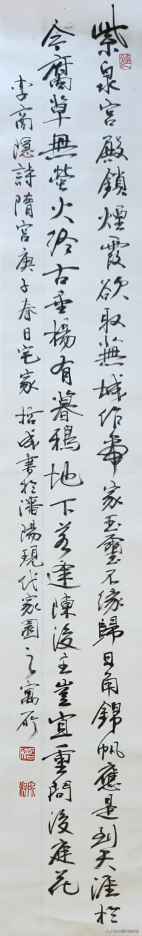 紫泉宮殿鎖煙霞欲取蕪城作帝家玉璽不緣歸日角錦帆應是到天涯於
今腐草無螢火終古垂楊有暮鴉地下若逢陳後主豈宜重問後庭花
李商隱詩隋宮庚子春日宅家 括成書於瀋陽現代家園之寓所